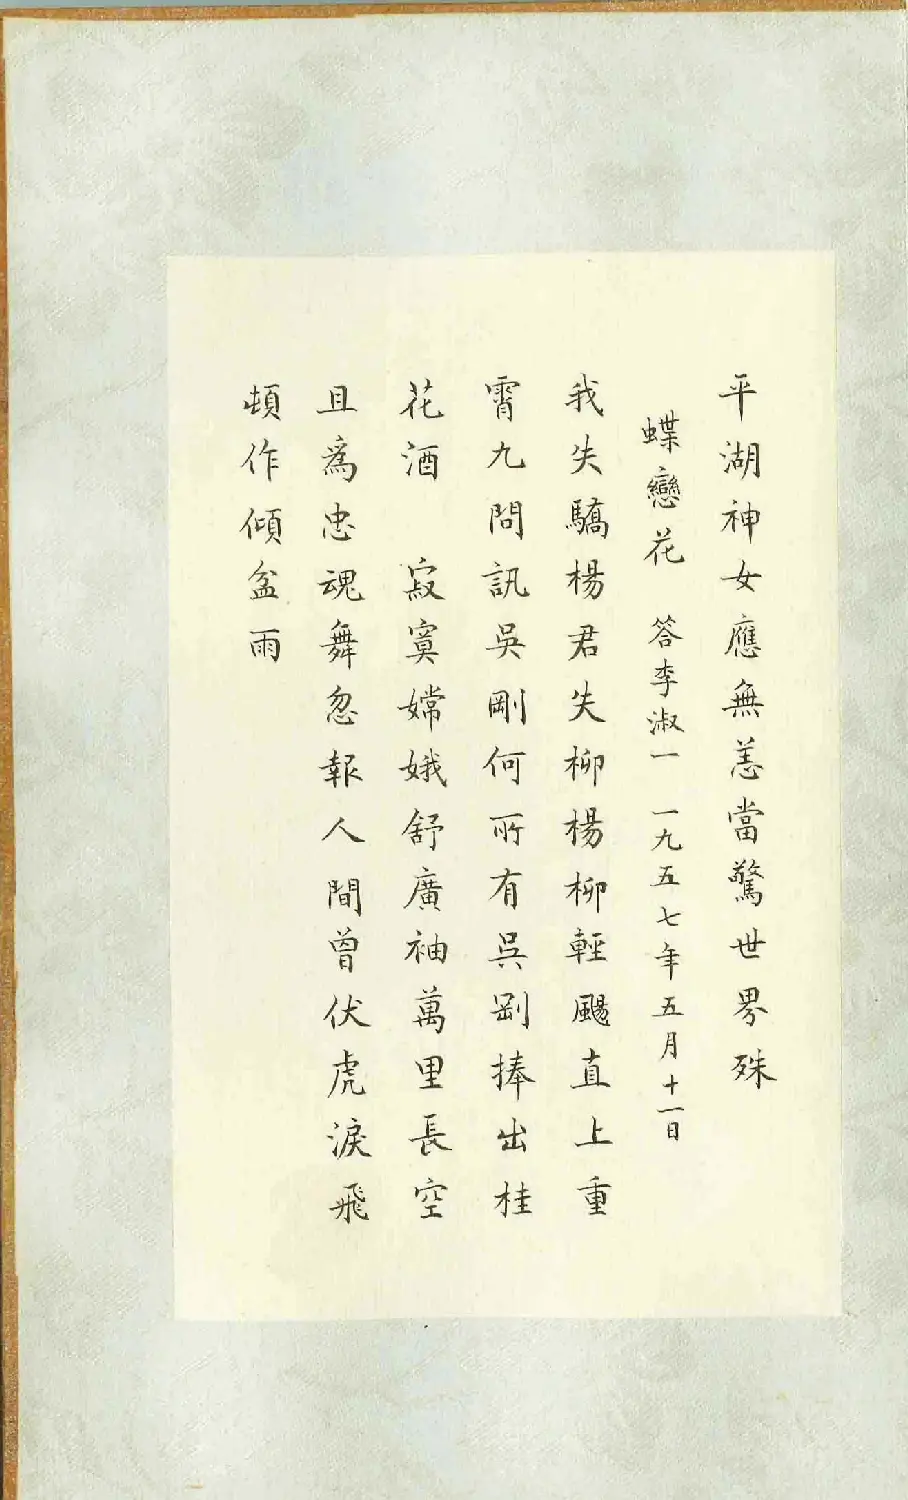 平湖神女應無恙當驚世界殊
蝶戀花 答李淑一 一九五七年五月十一日
我失驕楊君失柳楊柳輕颺直上重
霄九問訊吳剛何所有吳剛捧出桂
花酒 寂寞嫦娥舒廣袖萬里長空
且為忠魂舞忽報人間曾伏虎淚飛
頓作傾盆雨